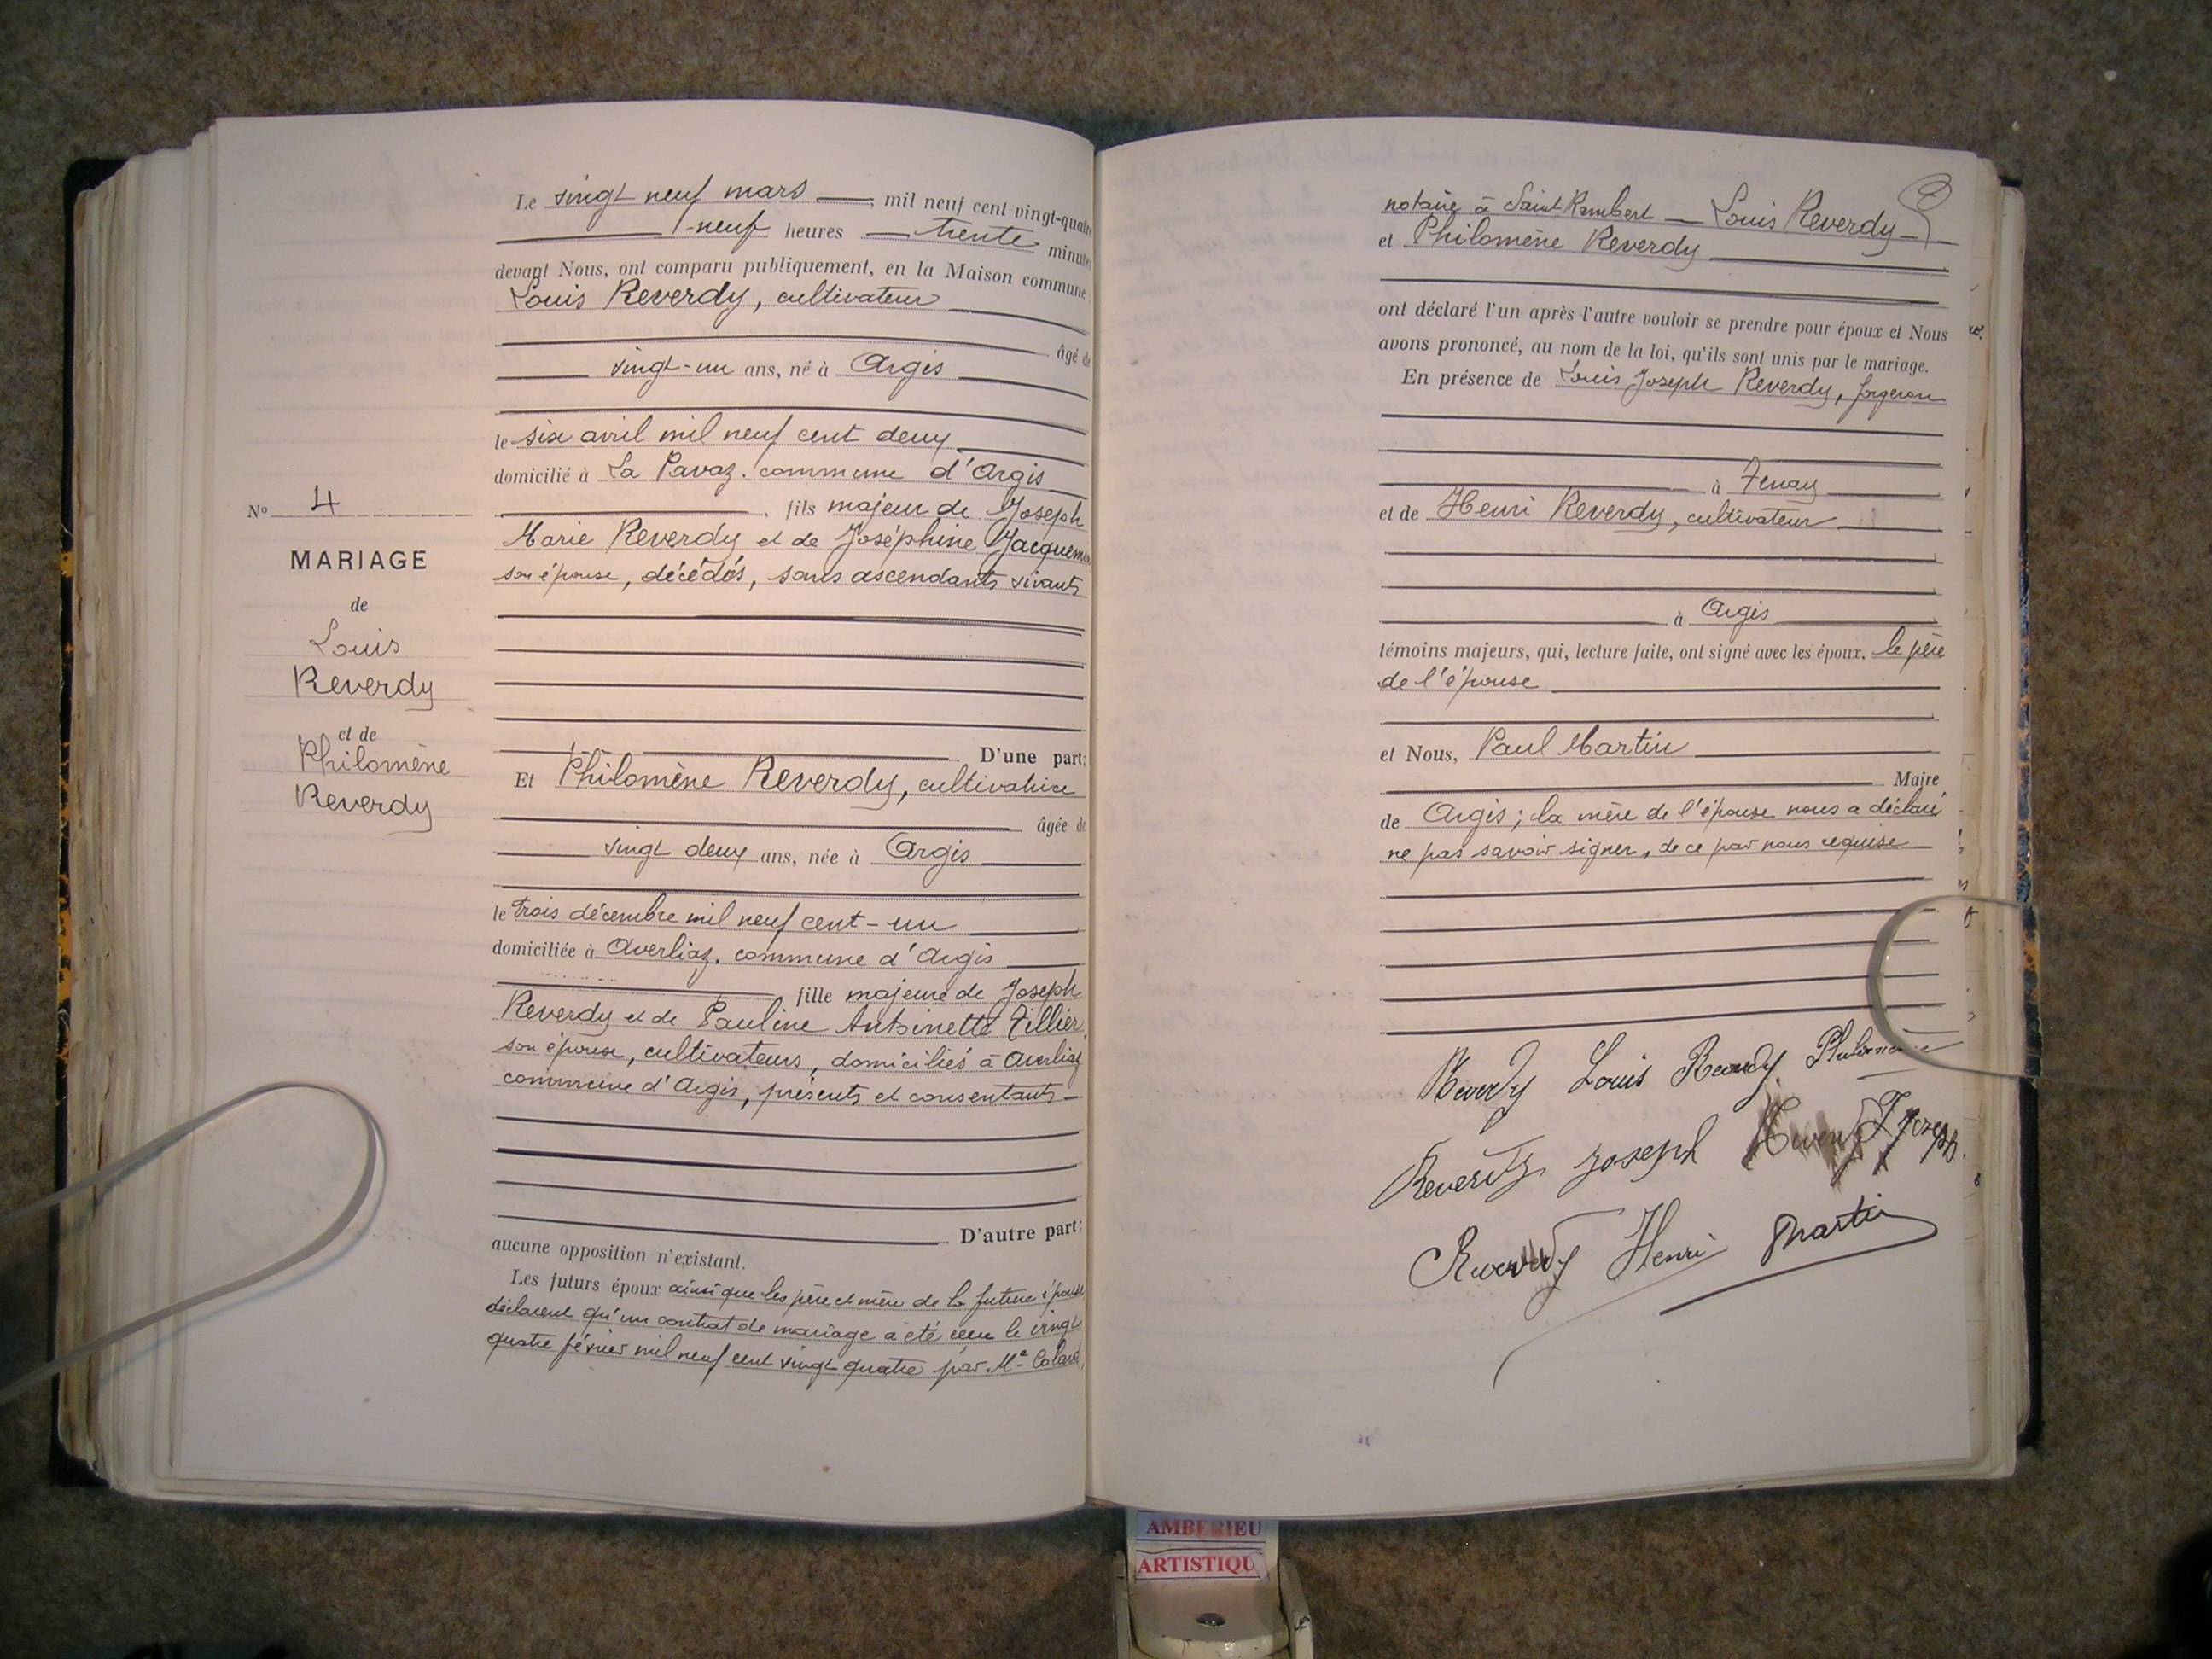 Le vingt neuf mars , mil neuf cent vingt-quatre
neuf heures trente minutes
devant Nous, ont comparu publiquement, en la Maison commune :
Louis Reverdy, cultivateur
âgé de
vingt-un ans, né à Argis
le six avril mil neuf cent deux
domicilié à La Pavaz. commune d'Argis
, fils majeur de Joseph
Marie Reverdy et de Joséphine
son épouse, décédés, sans ascendants vivants
D'une part;
Et Philomène Reverdy, cultivatrice
âgée de
vingt deux ans, née à Argis
le trois décembre mil neuf cent-un
domiciliée à Averliaz. commune d'Argis
, fille majeure de Joseph
Reverdy et de Pauline Antoinette Tillier,
son épouse, cultivateurs, domiciliés à Averliaz
commune d'Argis, présents et consentants
D'autre part;
aucune opposition n'existant.
Les futurs époux ainsi que les père et mère de la future épouse
déclarent qu'un contrat de mariage a été reçu le vingt
quatre février mil neuf cent vingt quatre par Me
No 4
MARIAGE
de
Louis
Reverdy
et de
Philomène
Reverdy
notaire à Saint Rambert — Louis Reverdy
et Philomène Reverdy
ont déclaré l'un après l'autre vouloir se prendre pour époux et Nous
avons prononcé, au nom de la loi, qu'ils sont unis par le mariage.
En présence de Louis Joseph Reverdy, forgeron
à Tenay
et de Henri Reverdy, cultivateur
à Argis
témoins majeurs, qui, lecture faite, ont signé avec les époux, le père
de l'épouse
et Nous, Paul Martin
Maire
de Argis; la mère de l'épouse nous a déclaré
ne pas savoir signer, de ce par nous requise
Reverdy Louis Reverdy Philomène
Reverdy Joseph
Reverdy Henri Martin
AMBERIEU
ARTISTIQU